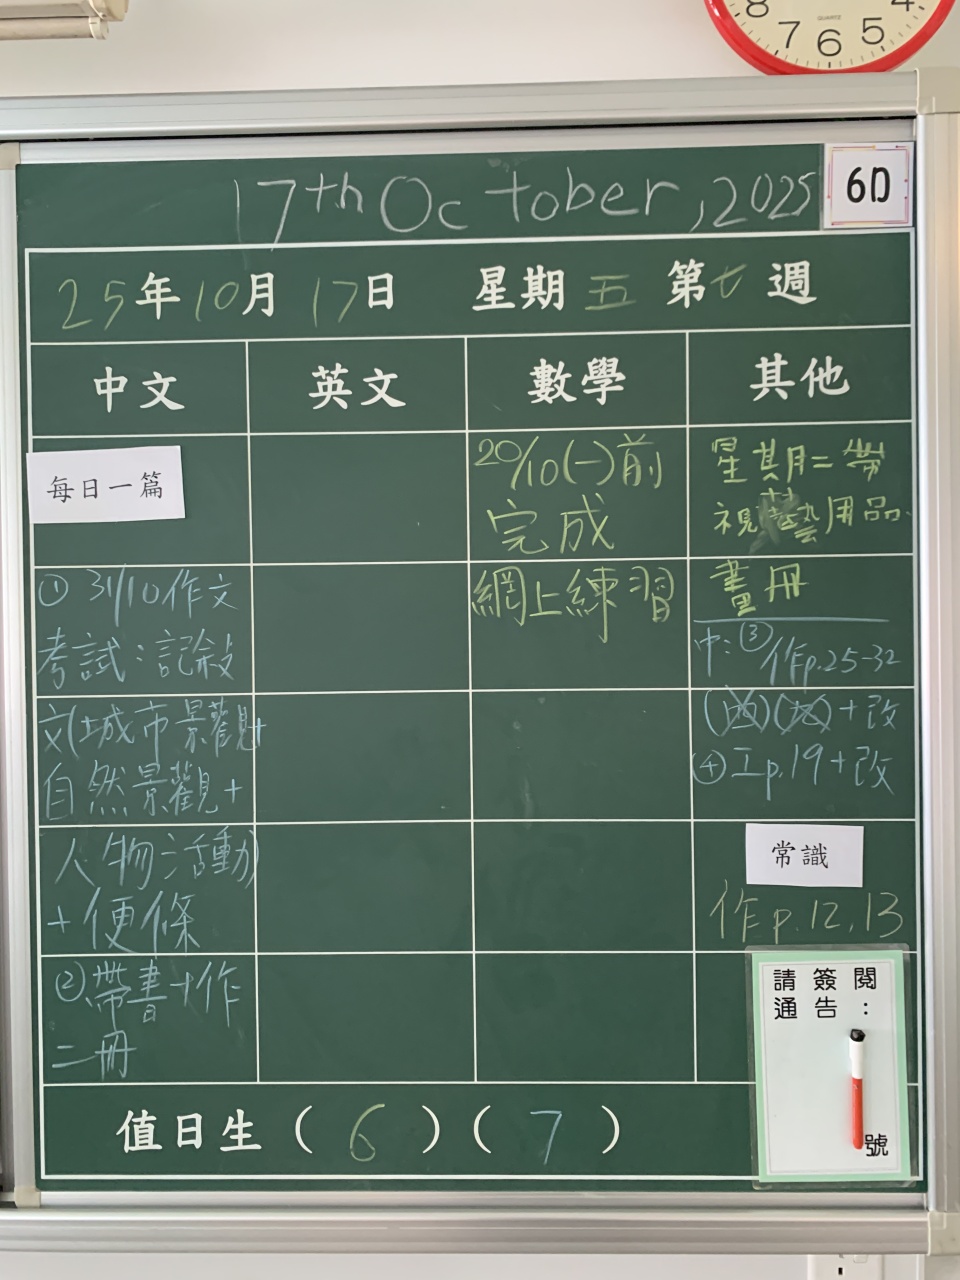 8 7 6 5 4
QUARTZ
17th October, 2025
6D
25年10月17日 星期五 第七週
中文 英文 數學 其他
每日一篇
① 31/10作文
考試：記敍
文(城市景觀+
自然景觀+
人物活動)
+便條
②帶書+作
二冊
20/10(一)前
完成
網上練習
星期二帶
視藝用品
畫冊
中：③作p.25-32
+改
④工p.19+改
常識
作p.12,13
請簽閱
通告：
號
值日生（6）（7）